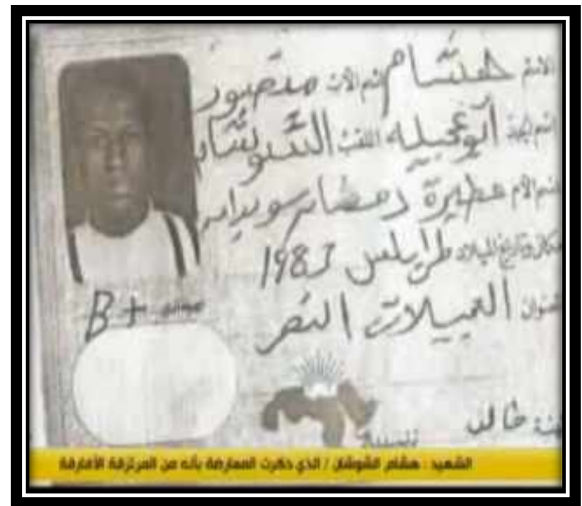 الاسم هشام اسم الأب منصور
اسم الجد أبو عجيله اللقب الشوشان
اسم الأم عطيرة رمضان سويدان
مكان وتاريخ الميلاد طرابلس 1983
العنوان العجيلات النصر
B+
طالب
الشهيد : هشام الشوشان / الذي ذكرت المعارضة بأنه من المرتزقة الأفارقة